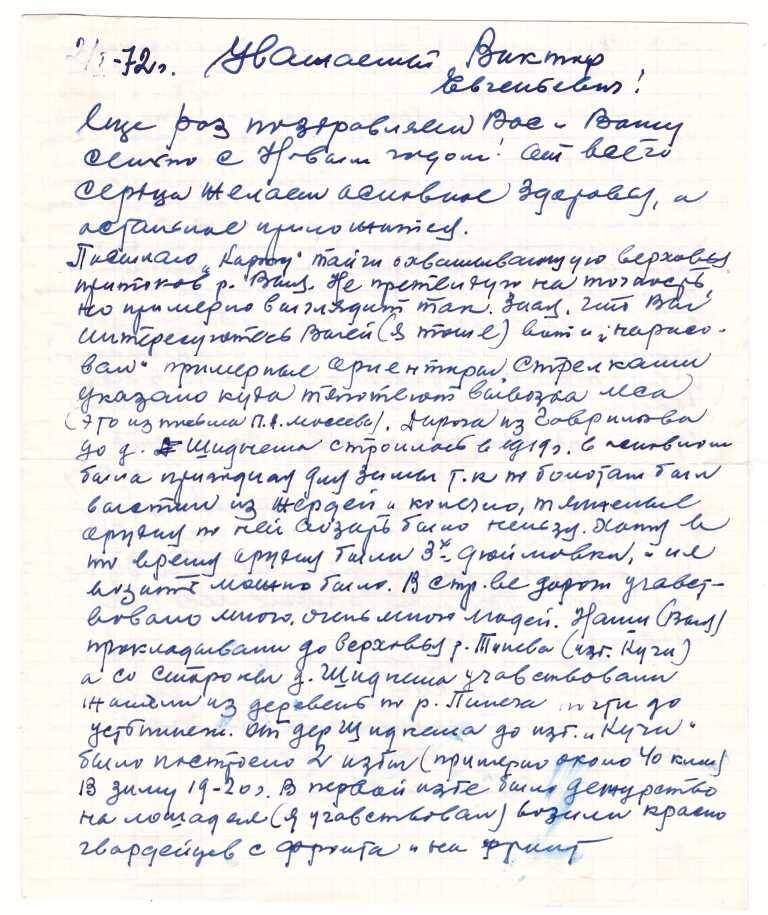 2/I-72г. Уважаемый Виктор
Евгеньевич!
Еще раз поздравляем Вас и Вашу
семью с Новым годом! От всего
сердца желаем основное здоровья, а
остальное приложится.
Посылаю "Карту" тайги охватывающую верховья
притоков р. Ваги. Не претендую на точность,
но примерно выглядит так. Зная, что Вы
интересуетесь Вагей (я тоже) вот и "нарисо-
вал" примерные ориентиры, стрелками
указано куда тяготеют вывозка леса
(Это из письма П.А. Мосеева). Дорога из Гаврилова
до д. Шиднема строилась в 1919г. в основном
была пригодная для зимы т.к по болотам был
выстил из жердей и конечно, тяжелые
орудия по ней возить было нельзя. Хотя в
то время орудия были 3х-дюймовки, и их
возить можно было. В стр-ве дорог учавст-
вовало много, очень много людей. Наши (Вага)
прокладывали до верховья р. (изб. Кучи)
а со стороны д. Шиднема учавствовали
жители из деревень по р. Пинега почти до
От дер Шиднема до изб. "Кучи"
было построено 2 избы (примерно около 40 клм)
В зиму 19-20г. В первой избе было дежурство
на лошадях (я учавствовал) возили красно
гвардейцев с фронта и на фронт